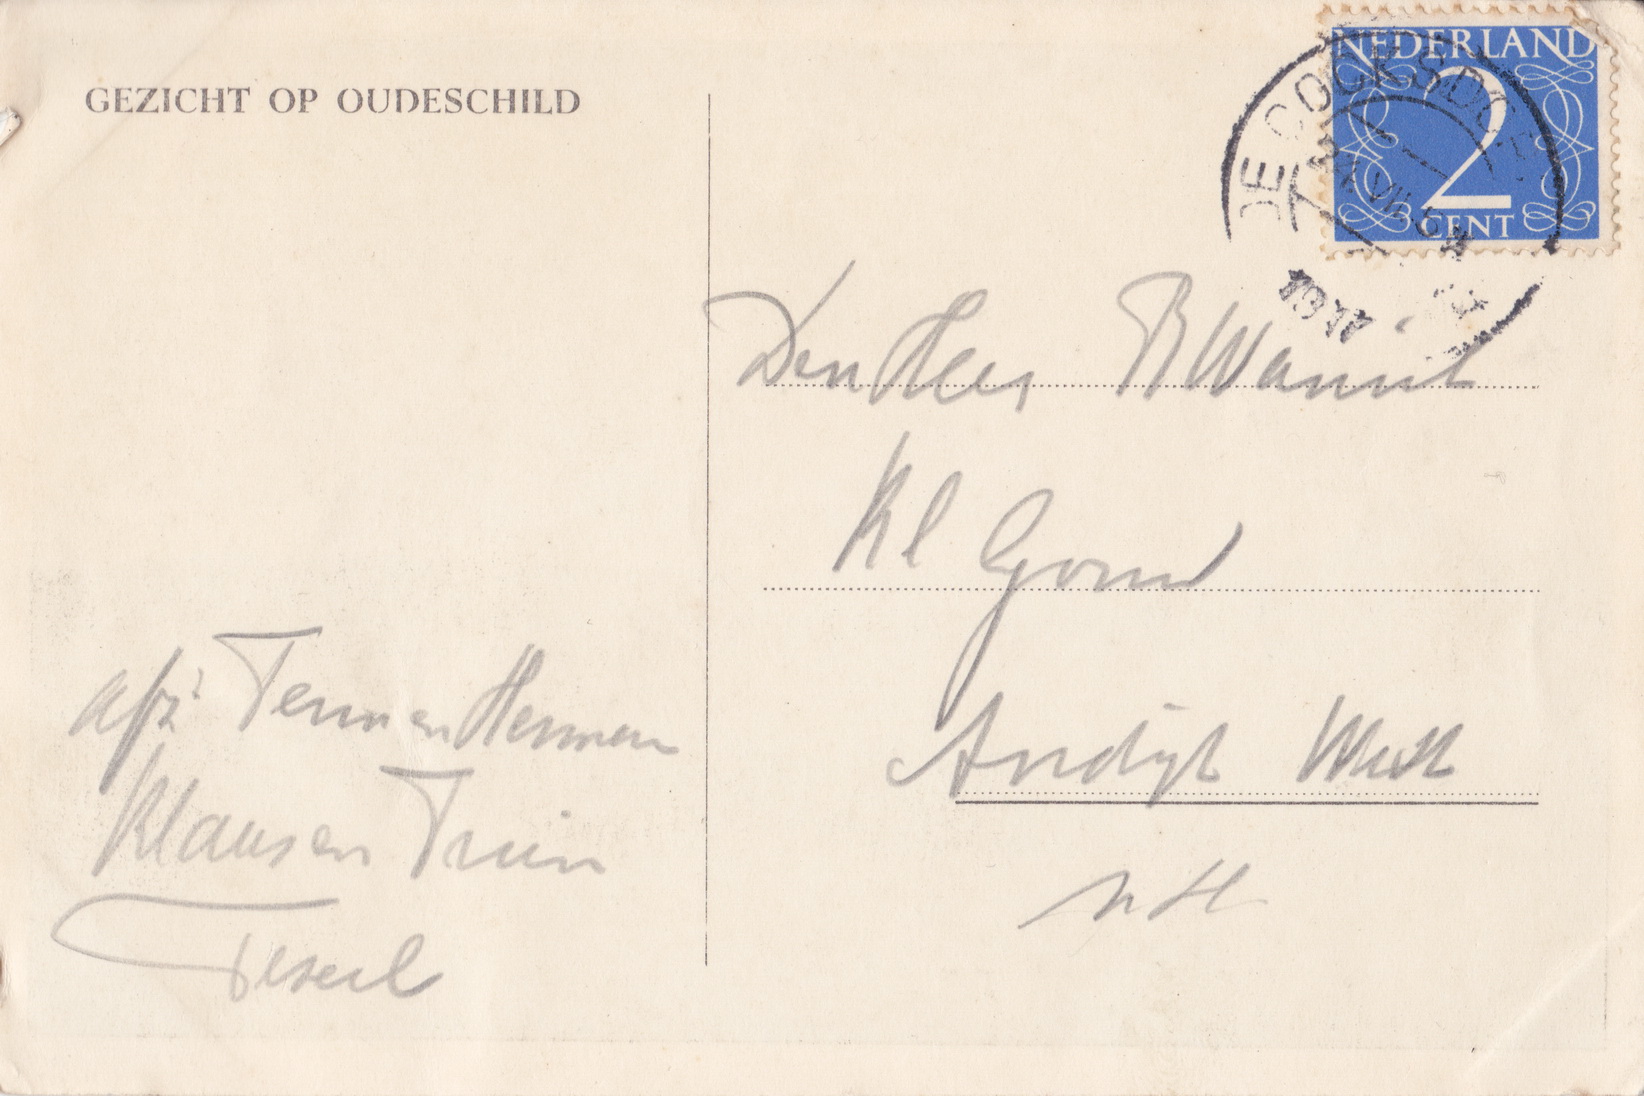 GEZICHT OP OUDESCHILD
NEDERLAND
2
CENT
DE COCKSDORP
Den Heer B
Kl
Andijk West
NH
afz: Teun en Herman
Klaas en Trien
Texel